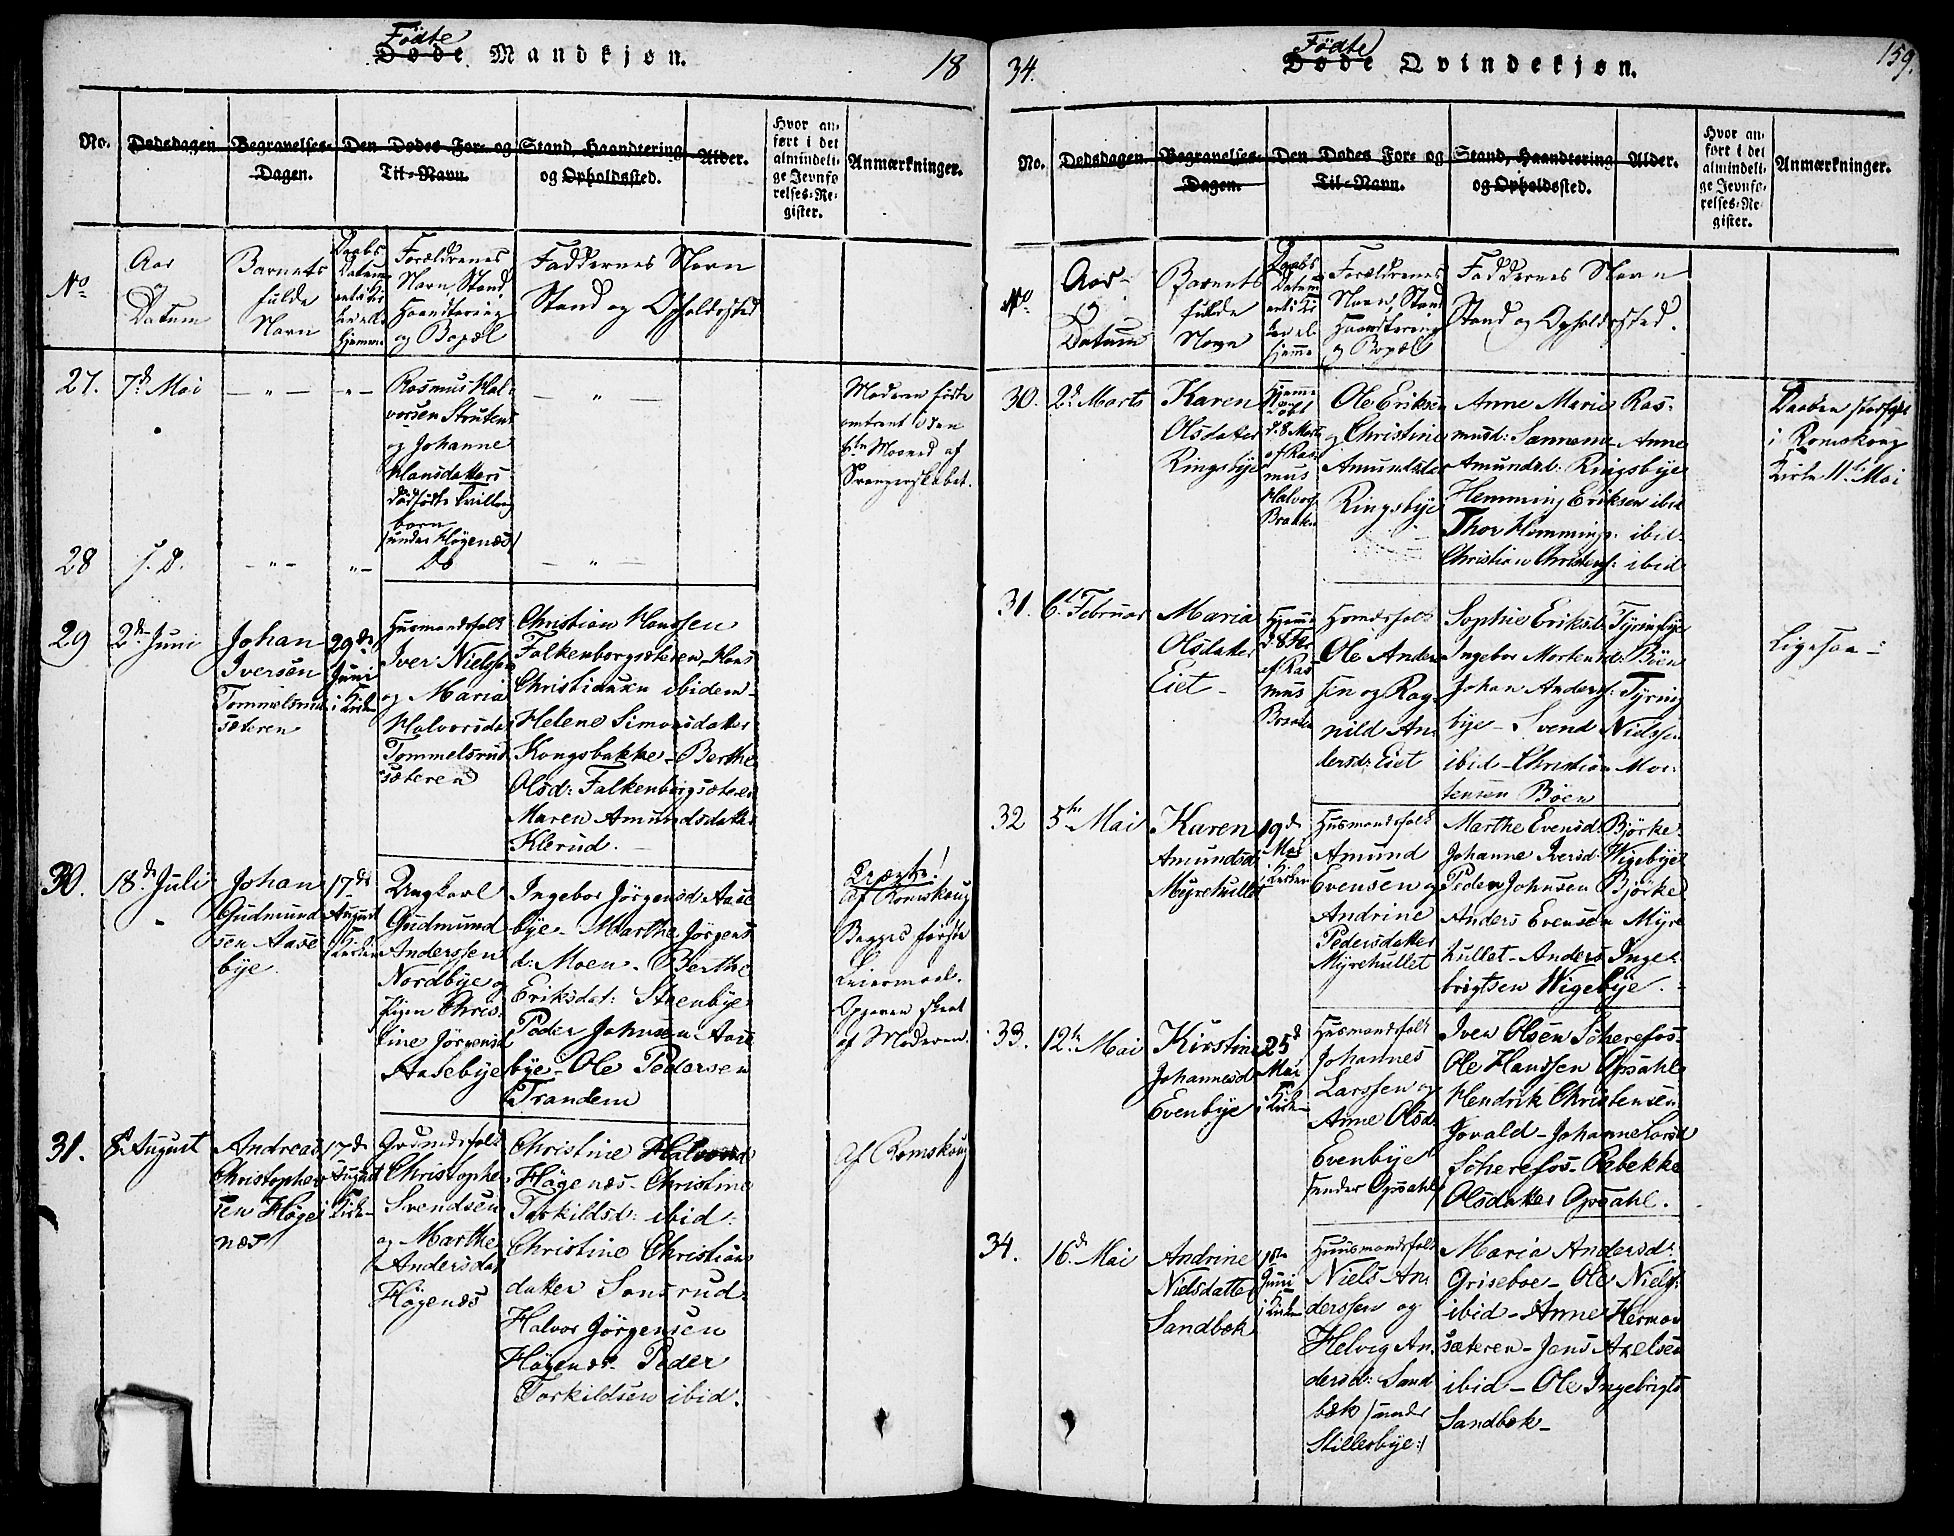 Fødte
Døde Mandkjøn.
18
No.
Dødsdagen
Begravelses-
Dagen.
Den Dødes For- og
Til-Navn.
Stand, Haandtering
og Opholdssted.
Alder.
Hvor an-
ført i det
almindeli-
ge Jevnfø-
relses-Re-
gister.
Anmærkninger.
No
Aar
og
Datum
Barnets
fulde
Navn
Daabs
Datum
Forældrenes
Navn, Stand,
Haandtering
og Bopæl
Faddernes Navn
Stand og Opholdssted
27.
7de Mai
— " —
Rasmus Hal-
vorsen Strutens
og Johanne
Hansdatters
dødfødte Tvilling
børn
under Høgenæs
— " —
Moderen fødte
omtrent i den
6te Maaned af
Svangerskabet.
28
s. D.
— " —
" —
Do
— " —
29
2de Juni
Johan
Iversen
Tommelsrud
sæteren
29de
Juni
i Kirken
Husmandsfolk
Iver Nielsen
og Maria
Halvorsdatr
Tommelsrud
sæteren
Christian Hansen
Falkenborgsæteren – Hans
Christiansen ibidem –
Helene Simonsdatter
Kongsbakke – Berthe
Olsd: Falkenborgsæteren
Maren Amundsdatter
Klerud. –
30.
18de Juli
Johan
Gudmund
sen Aase
bye.
17de
August
i Kirken
Ungkarl
Gudmund
Anderssen
Nordbye og
Pigen Chris-
tine Jørgensd
Aasebye
Ingebor Jørgensd: Aase
bye – Marthe Jørgens
d: Moen – Berthe
Eriksdat: Steenbye
Peder Johnsen Aase
bye – Ole Pedersen
Trandem
Uægte!
Af Romskoug
Begges første
Leiermaal.
Opgaven skeet
af Moderen.
31.
8de August
Andreas
Christopher
sen Høge
næs
17de
August
i Kirken
Gaardmandsfolk
Christopher
Svendsen
og Marthe
Andersdat
Høgenæs
Christine Halvorsd
Høgenæs – Christine
Torkildsd: ibid:
Christine Christians
datter Sonsrud
Halvor Jørgensen
Høgenæs – Peder
Torkildsen ibid.
af Romskoug
34.
Fødte
Døde Qvindekjøn.
159.
No.
Dødsdagen.
Begravelses-
Dagen.
Den Dødes For- og
Til-Navn.
Stand, Haandtering
og Opholdssted.
Alder.
Hvor an-
ført i det
almindeli-
ge Jevnfø-
relses-Re-
gister.
Anmærkninger.
No
Aar
og
Datum
Barnets
fulde
Navn
Daabs
Datum
enten i Kir
ken el.
hjemme
Forældrenes
Navn, Stand
Haandtering
og Bopæl
Faddernes Navn
Stand og Opholdssted.
30.
2de Marts
Karen
Olsdatter
Ringsbye
Hjemme
døbt
d. 8 Marts
af Ras
mus
Halvors
Braaten
Ole Eriksen
og Christine
Amundsdatr
Ringsbye
Anne Marie Ras-
musd: Sanneme Anne
Amundsd: Ringsbye
Hemming Eriksen ibid
Thor Hemmings: ibid.
Christian Christens: ibid
Daaben stadfæst
i Romskoug
Kirke 11te Mai
31.
6te Februar
Maria
Olsdatter
Eiet –
Hjemme
d. 8 Febr
af Ras
mus
Braaten
Ole Ander
sen og Rag
nild An-
dersd: Eiet
Sophie Eriksd: Tyringbye
Ingebor Mortensd: Böen
Johan Anders: Tyring
bye – Svend Nielsen
ibid – Christian Mor-
tensen Böen
Ligesaa –
32
5te Mai
Karen
Amundsd:
Myrehullet
19de
Mai
i Kirken
Husmandsfolk
Amund
Evensen og
Andrine
Pedersdatter
Myrehullet
Marthe Evensd: Bjørke
Johanne Iversd: Wigebye
Peder Johnsen Bjørke
Anders Evensen Myre
hullet – Anders Inge-
brigtsen Wigebye.
33.
12te Mai
Kirstine
Johannesd
Evenbye
25de
Mai
i Kirken
Husmandsfolk
Johannes
Larssen og
Anne Olsd
Evenbye
under Opsahl
Iver Olsen Scherefos –
Ole Hanssen Opsahl
Hendrik Christensen
Jovald – Johanne Larsd
Scherefos – Rebekke
Olsdatter Opsahl.
34.
16de Mai
Andrine
Nielsdatter
Sandbæk
1ste
Juni
i Kirken
Husmandsfolk
Niels An-
derssen og
Helvig An-
dersd: Sand
bæk /under
Stillesbye:/
Maria Andersd:
Griseboe – Ole Niels:
ibid – Anne Hermo
sæteren – Jens Axelsen
ibid – Ole Ingebrigts
Sandbæk –